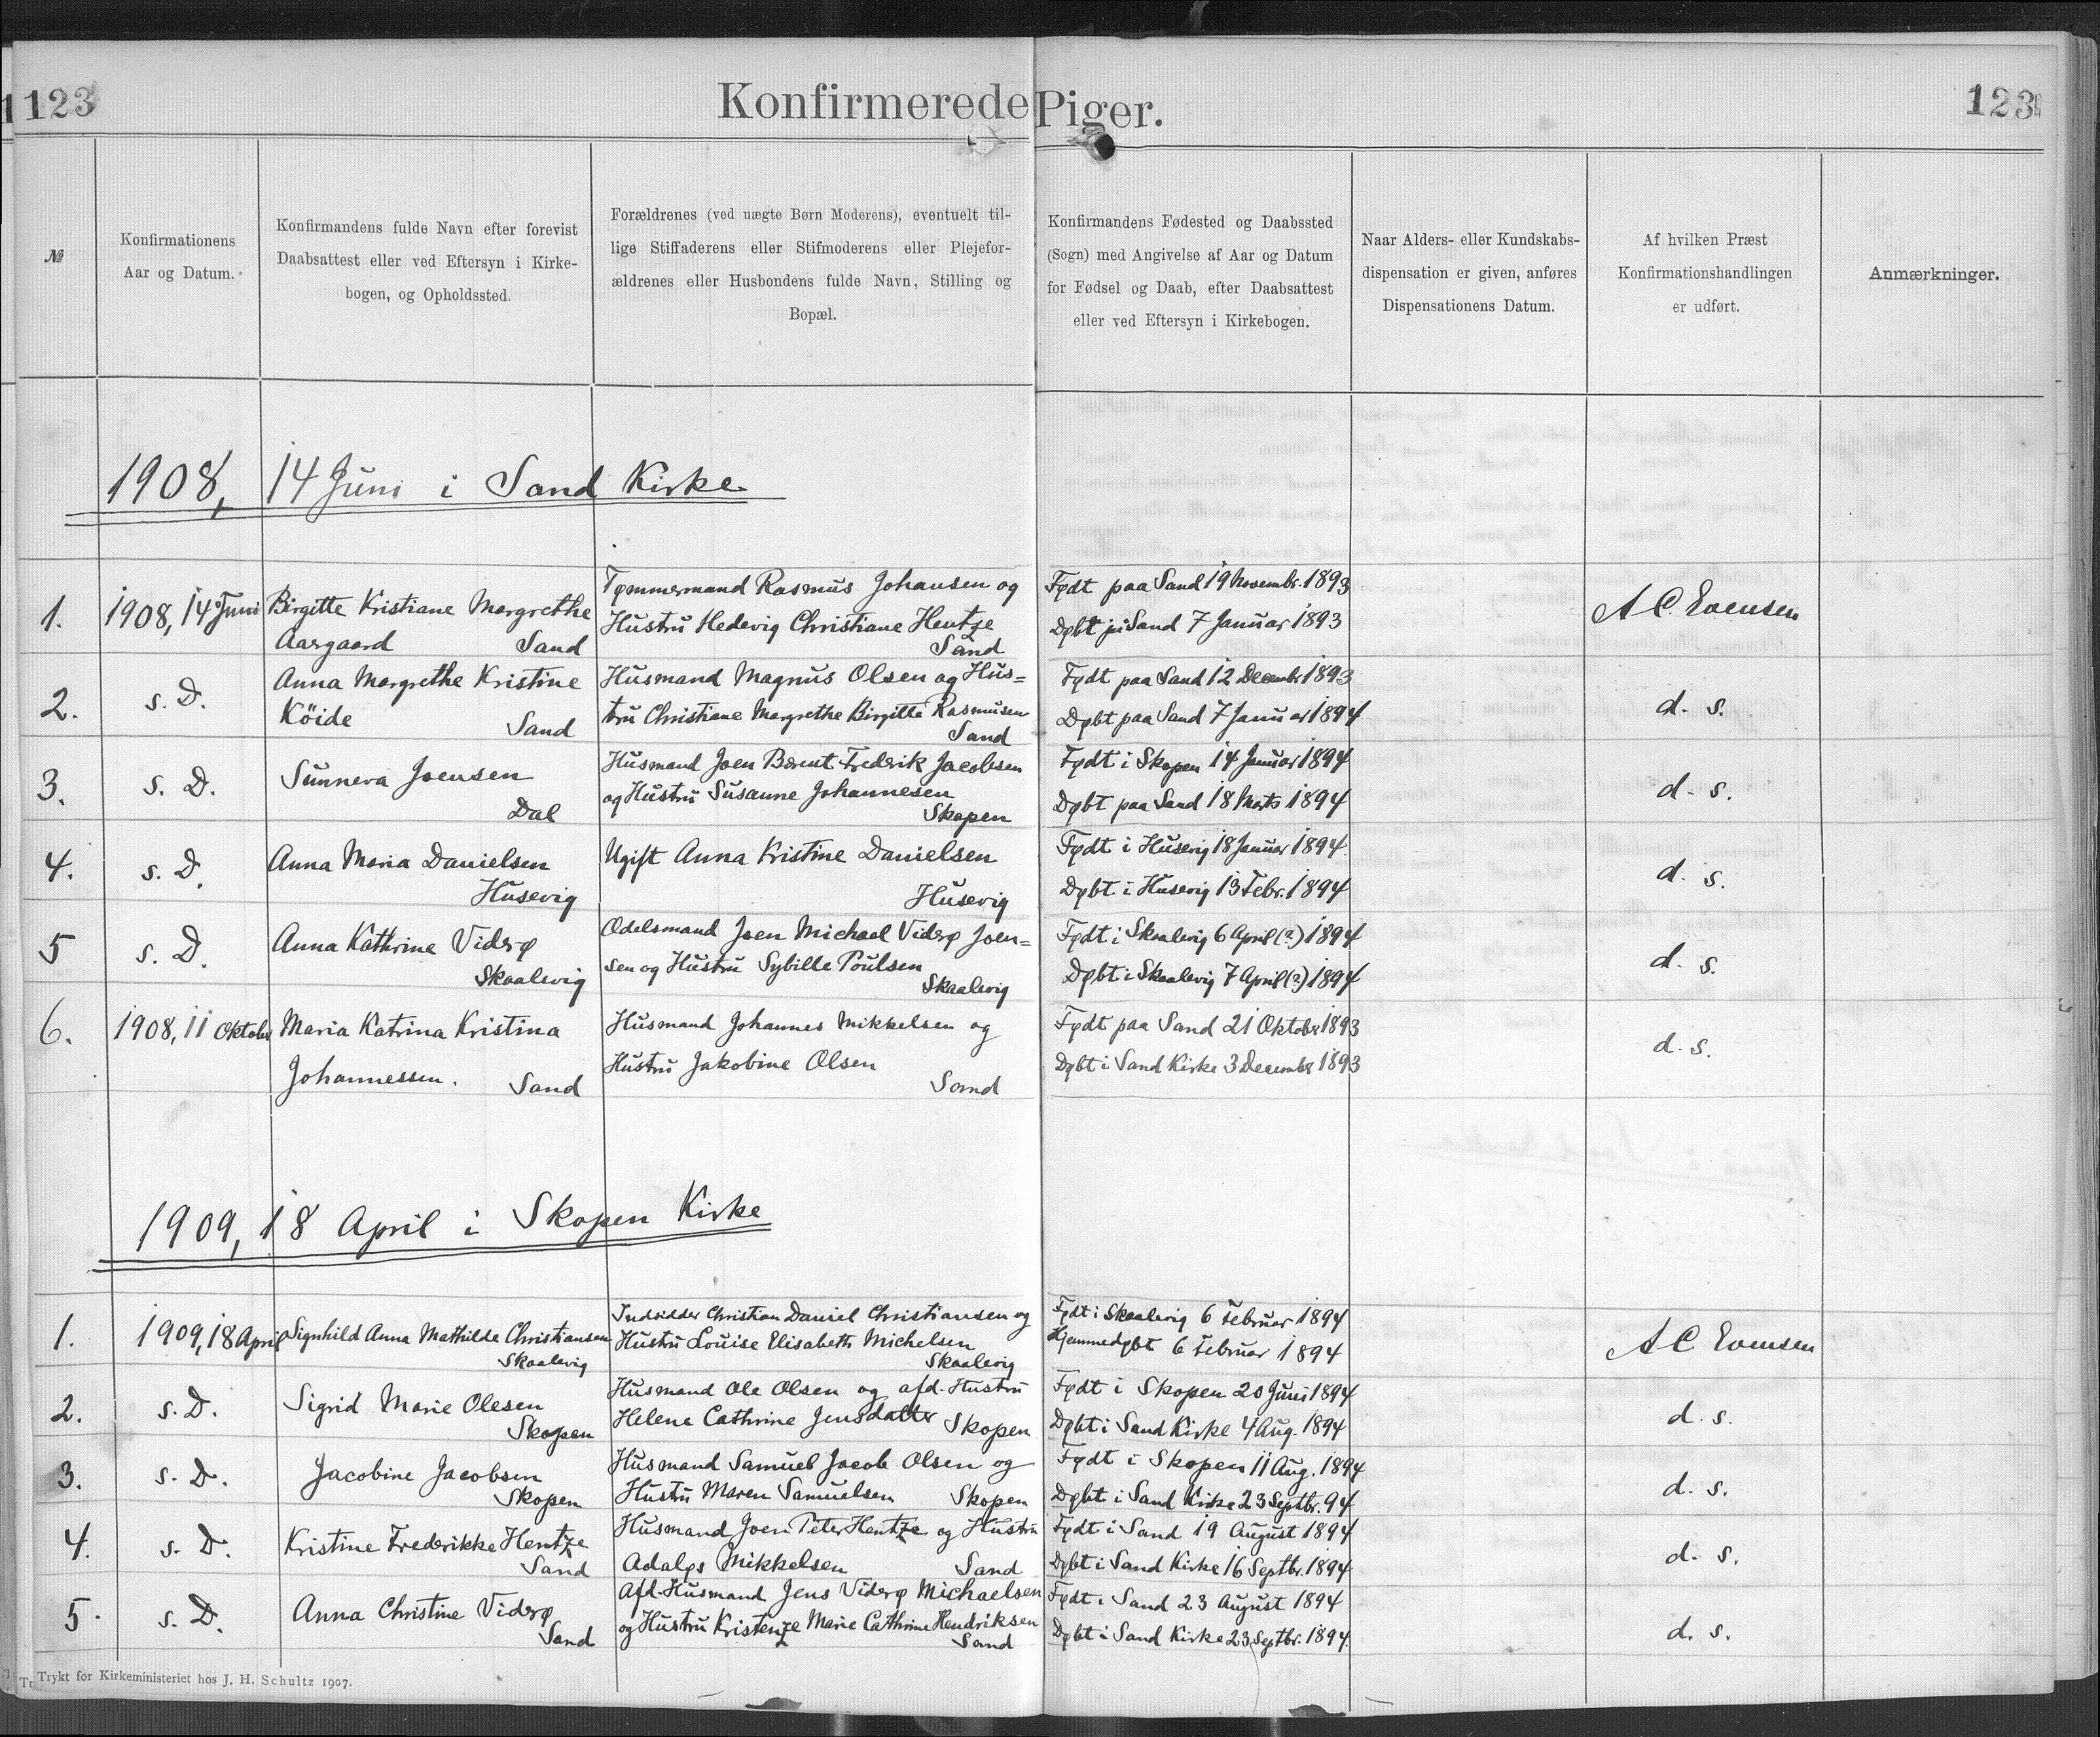 123
Konfirmerede Piger.
123
№
Konfirmationens
Aar og Datum.
Konfirmandens fulde Navn efter forevist
Daabsattest eller ved Eftersyn i Kirke-
bogen, og Opholdssted.
Forældrenes (ved uægte Børn Moderens), eventuelt til-
lige Stiffaderens eller Stifmoderens eller Plejefor-
ældrenes eller Husbondens fulde Navn, Stilling og
Bopæl.
Konfirmandens Fødested og Daabssted
(Sogn) med Angivelse af Aar og Datum
for Fødsel og Daab, efter Daabsattest
eller ved Eftersyn i Kirkebogen.
Naar Alders- eller Kundskabs-
dispensation er given, anføres
Dispensationens Datum.
Af hvilken Præst
Konfirmationshandlingen
er udført.
Anmærkninger.
1908, 14 Juni i Sand Kirke
1.
1908, 14 Juni
Birgitte Kristiane Margrethe
Aargaard Sand
Tømmermand Rasmus Johansen og
Hustru Hedevig Christiane Hentze
Sand
Født paa Sand 19 Novembr. 1893
Døbt Sand 7 Januar 1893
A C. Evensen
2.
s. D.
Anna Margrethe Kristine
Köide Sand
Husmand Magnus Olsen og Hus=
tru Christiane Margrethe Birgitte Rasmusen
Sand
Født paa Sand 12 Decembr 1893
Døbt paa Sand 7 Januar 1894
d. s.
3.
s. D.
Sunneva Joensen
Dal
Husmand Joen Berent Frederik Jacobsen
og Hustru Susanne Johannesen
Skopen
Født i Skopen 14 Januar 1894
Døbt paa Sand 18 Marts 1894
d. s.
4.
s. D.
Anna Maria Danielsen
Husevig
Ugift Anna Kristine Danielsen
Husevig
Født i Husevig 18 Januar 1894.
Døbt i Husevig 13 Febr. 1894
d. s.
5
s. D.
Anna Kathrine Viderø
Skaalevig
Odelsmand Joen Michael Viderø Joen=
sen og Hustru Sybille Poulsen
Skaalevig
Født i Skaalevig 6 April (?) 1894
Døbt i Skaalevig 7 April (?) 1894
d. s.
6.
1908, 11 Oktober
Maria Katrina Kristina
Johannessen. Sand
Husmand Johannes Mikkelsen og
Hustru Jakobine Olsen
Sand
Født paa Sand 21 Oktober 1893
Døbt i Sand Kirke 3 December 1893
d. s.
1909, 18 April i Skopen Kirke
1.
1909, 18 April
Signhild Anna Mathilde Christiansen
Skaalevig
Indsidder Christian Daniel Christiansen og
Hustru Louise Elisabeth Michelsen
Skaalevig
Født i Skaalevig 6 Februar 1894
Hjemmedøbt 6 Februar 1894
A C Evensen
2.
s. D.
Sigrid Marie Olesen
Skopen
Husmand Ole Olsen og afd. Hustru
Helene Cathrine Jensdatter Skopen
Født i Skopen 20 Juni 1894
Døbt i Sand Kirke 4 Aug. 1894
d. s.
3.
s. D.
Jacobine Jacobsen
Skopen
Husmand Samuel Jacob Olsen og
Hustru Maren Samuelsen Skopen
Født i Skopen 11 Aug. 1894
Døbt i Sand Kirke 23 Septbr. 94
d. s.
4.
s. D.
Kristine Frederikke Hentze
Sand
Husmand Joen Peter Hentze og Hustru
Adalgs Mikkelsen Sand
Født i Sand 19 August 1894
Døbt i Sand Kirke 16 Septbr. 1894
d. s.
5.
s. D.
Anna Christine Viderø
Sand
Afd. Husmand Jens Viderø Michaelsen
og Hustru Kristenze Marie Cathrine Hendriksen
Sand
Født i Sand 23 August 1894
Døbt i Sand Kirke 23 Septbr. 1894.
d. s.
Trykt for Kirkeministeriet hos J. H. Schultz 1907.